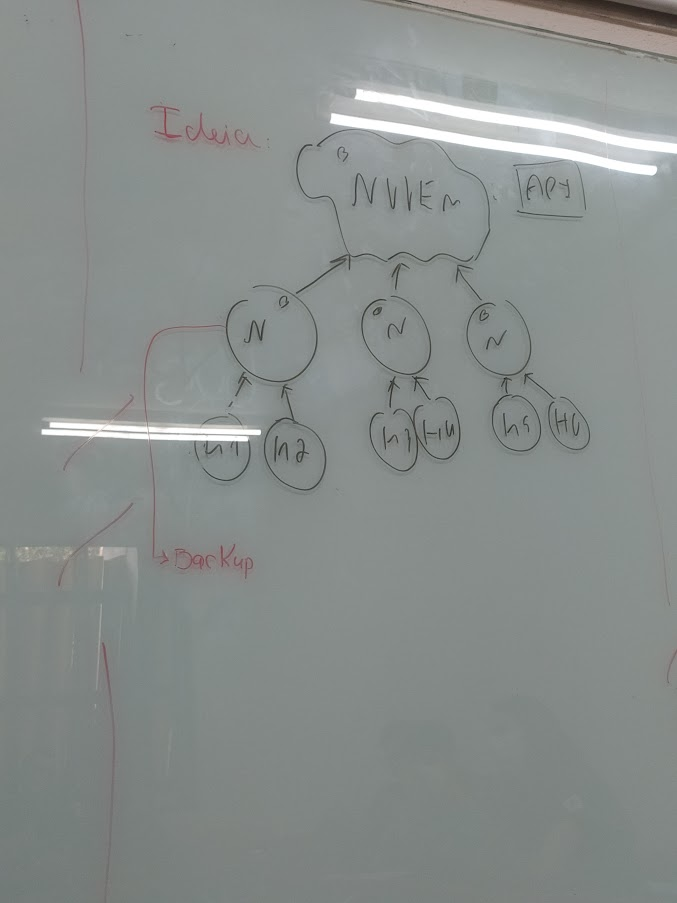 Ideia:
B
NUVEm
API
N B
B N
B N
h1 h2 h3 H4 h5 H6
Backup